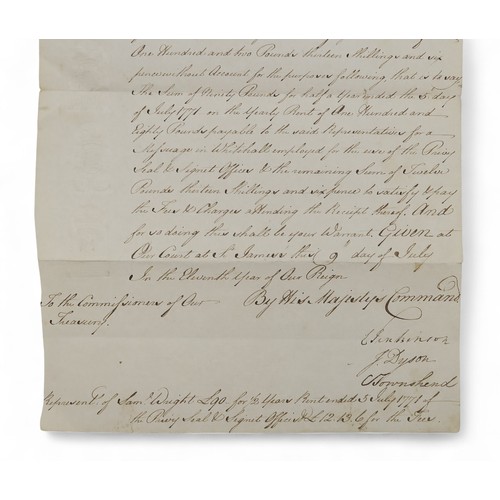 One Hundred and two Pounds thirteen Shillings and six
pence without Account for the purposes following, that is to say
The Sum of Ninety Pounds for half a Year ended the 5 day
of July 1771 on the Yearly Rent of One Hundred and
Eighty Pounds payable to the said Representatives for a
Messuage in Whitehall employed for the use of the Privy
Seal & Signet Offices & the remaining Sum of Twelve
Pounds thirteen Shillings and sixpence to satisfy & pay
the Fees & Charges attending the Receipt thereof. And
for so doing this shall be your Warrant. Given at
Our Court at St. James's this 9 day of July
In the Eleventh Year of Our Reign
By His Majesty's Command
To the Commissioners of Our
Treasury.
C Jenkinson
J Dyson
C Townshend
Represent. of Sam. Wright £90 for ½ Years Rent ended 5 July 1771 of
the Privy Seal & Signet Offices & £12.13.6 for the Fees